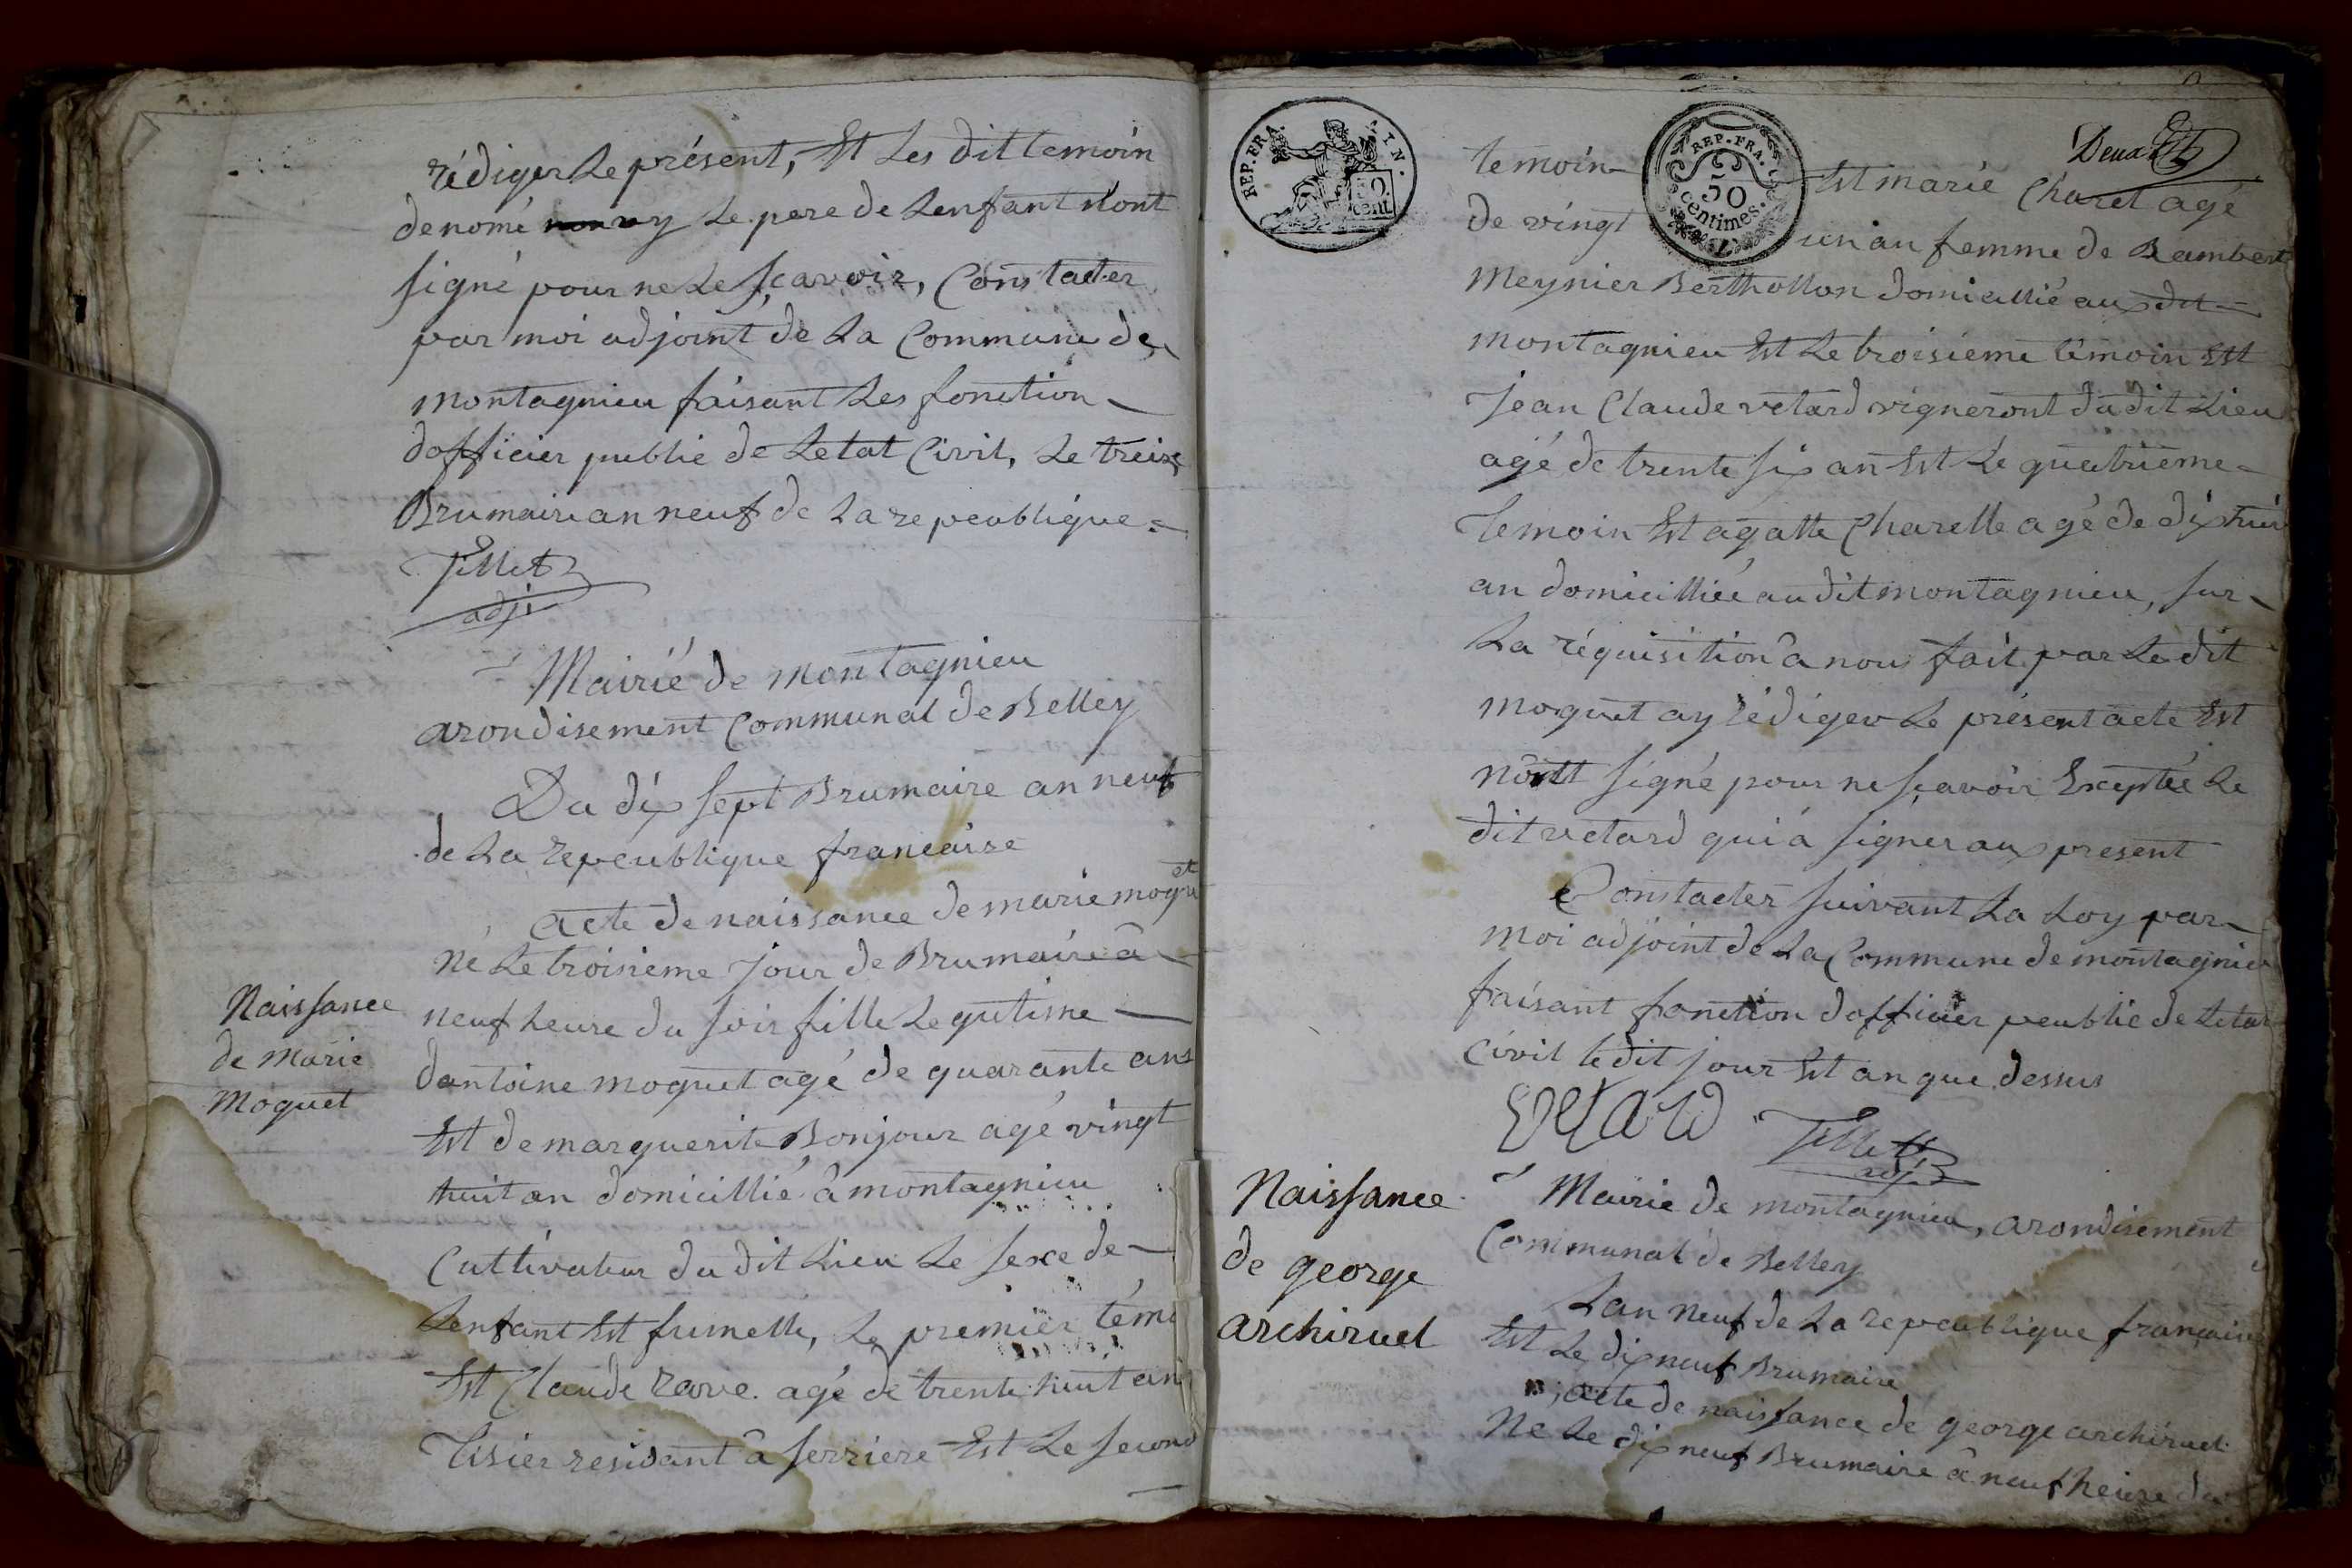 rédiger le présent, Est Les dit temoin
denomé ny Le pere de Lenfant n'ont
signé pour ne le sçavoir, Constater
par moi adjoint de La Commune de
montagnieu faisant Les fonction
dofficier publie de Letat Civil, Le treize
Brumaire an neuf de La repeublique
Tillet
adj
Mairié de montagnieu
arondisement Communal de Belley
Du dix sept Brumaire an neuf
de La repeublique francaise
acte de naissance de marie moquet
Né Le troisieme jour de Brumaire â
Naissance
de Marie
Moquet
neuf heure du soir fille Legutime
dantoine moquet agé de quarante ans
Est de marguerite Bonjour agé vingt
huit an domicillié â montagnieu
Cultivateur du dit Lieu Le sexe de
Lenfant Est fumelle, Le premier témo
Est Claude rave agé de trente huit an
Tisier residant â serriere Est Le second
REP. FRA. 50 cent.
REP. FRA. 50 centimes.
temoin Est marié Charel agé
de vingt un an femme de Rambert
Meynier Berthollon domicillié aux dit
montagnieu Est Le troisieme témoin Est
Jean Claude vetard vigneront du dit Lieu
agé de trente six an Est Le quatrieme
Temoin Est agatte Charelle agé de dix huit
an domicilliée au dit montagnieu, sur
La réquisition â nous fait par Le dit
moquet ay rédiger Le présent acte Est
n'ont signé pour ne sçavoir Exceptée Le
dit vetard qui á signer aux present
Constater suivant La Loy par
moi adjoint de La Commune de montagnieu
faisant fonction dofficier peublie de Letat
Civil le dit jour Est an que dessus
vetard Tillet
adj
Naissance
de george
archiruel
Mairie de montagnieu, arondisement
Communal de Belley
Lan neuf de La repeublique française
Est Le dix neuf Brumaire
acte de naissance de george archiruel
Né Le dix neuf Brumaire â neuf heure du